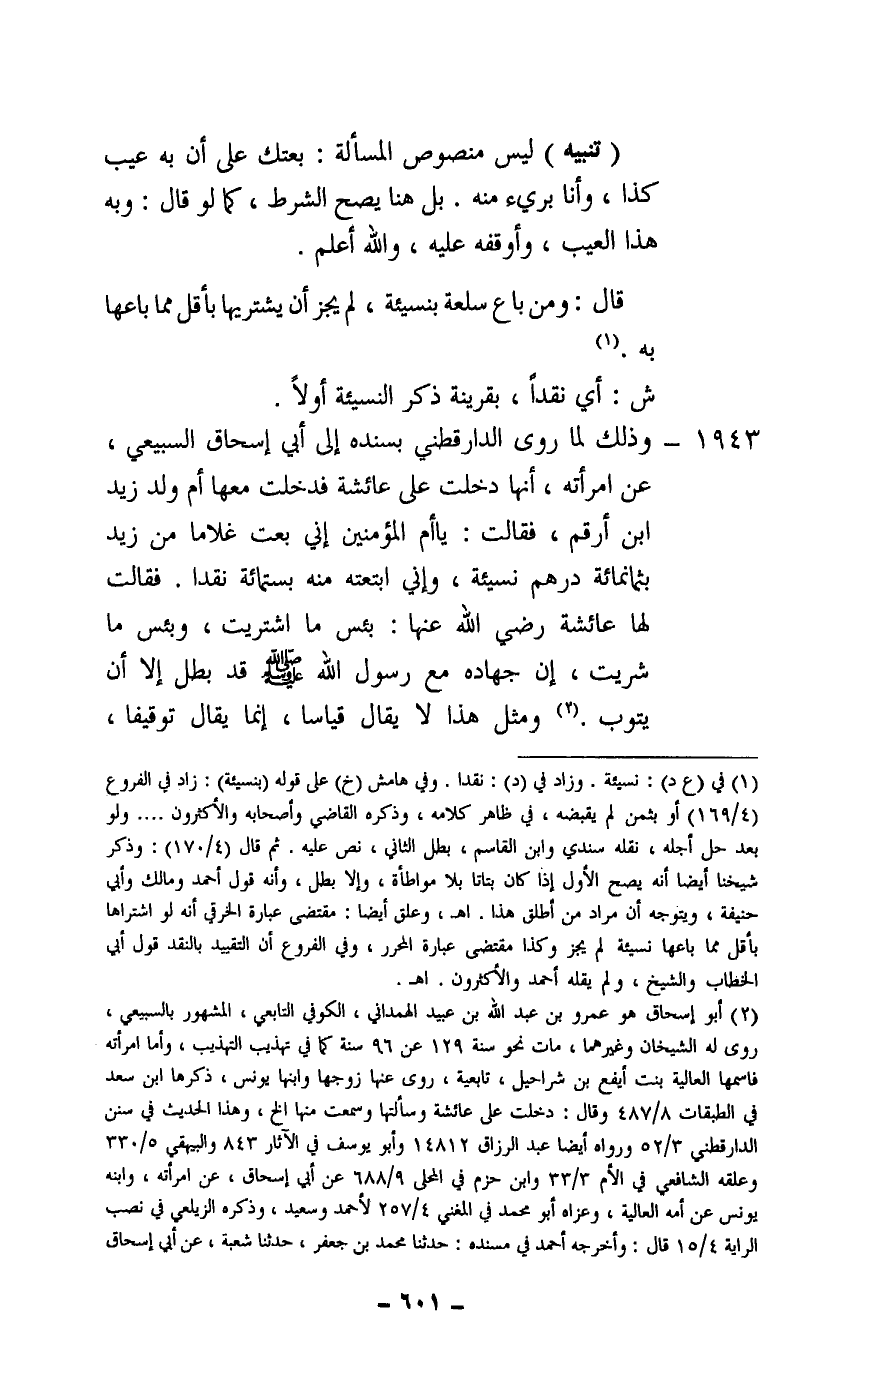 ( تنبيه ) ليس منصوص المسألة : بعتك على أن به عيب
كذا ، وأنا بريء منه . بل هنا يصح الشرط ، كما لو قال : وبه
هذا العيب ، وأوقفه عليه ، والله أعلم .
قال : ومن باع سلعة بنسيئة ، لم يجز أن يشتريها بأقل مما باعها
به .(١)
ش : أي نقداً ، بقرينة ذكر النسيئة أولاً .
١٩٤٣ ـ وذلك لما روى الدارقطني بسنده إلى أبي إسحاق السبيعي ،
عن امرأته ، أنها دخلت على عائشة فدخلت معها أم ولد زيد
ابن أرقم ، فقالت : ياأم المؤمنين إني بعت غلاما من زيد
بثمانمائة درهم نسيئة ، وإني ابتعته منه بستمائة نقدا . فقالت
لها عائشة رضي الله عنها : بئس ما اشتريت ، وبئس ما
شريت ، إن جهاده مع رسول الله ﷺ قد بطل إلا أن
يتوب .(٢) ومثل هذا لا يقال قياسا ، إنما يقال توقيفا ،
(١) في (ع د) : نسيئة . وزاد في (د) : نقدا . وفي هامش (خ) على قوله (بنسيئة) : زاد في الفروع
(١٦٩/٤) أو بثمن لم يقبضه ، في ظاهر كلامه ، وذكره القاضي وأصحابه والأكثرون .... ولو
بعد حل أجله ، نقله سندي وابن القاسم ، بطل الثاني ، نص عليه . ثم قال (١٧٠/٤) : وذكر
شيخنا أيضا أنه يصح الأول إذا كان بتاتا بلا مواطأة ، وإلا بطل ، وأنه قول أحمد ومالك وأبي
حنيفة ، ويتوجه أن مراد من أطلق هذا . اهـ ، وعلق أيضا : مقتضى عبارة الخرقي أنه لو اشتراها
بأقل مما باعها نسيئة لم يجز وكذا مقتضى عبارة المحرر ، وفي الفروع أن التقييد بالنقد قول أبي
الخطاب والشيخ ، ولم يقله أحمد والأكثرون . اهـ .
(٢) أبو إسحاق هو عمرو بن عبد الله بن عبيد الهمداني ، الكوفي التابعي ، المشهور بالسبيعي ،
روى له الشيخان وغيرهما ، مات نحو سنة ١٢٩ عن ٩٦ سنة كما في تهذيب التهذيب ، وأما امرأته
فاسمها العالية بنت أيفع بن شراحيل ، تابعية ، روى عنها زوجها وابنها يونس ، ذكرها ابن سعد
في الطبقات ٤٨٧/٨ وقال : دخلت على عائشة وسألتها وسمعت منها الخ ، وهذا الحديث في سنن
الدارقطني ٥٢/٣ ورواه أيضا عبد الرزاق ١٤٨١٢ وأبو يوسف في الآثار ٨٤٣ والبيهقي ٣٣٠/٥
وعلقه الشافعي في الأم ٣٣/٣ وابن حزم في المحلى ٦٨٨/٩ عن أبي إسحاق ، عن امرأته ، وابنه
يونس عن أمه العالية ، وعزاه أبو محمد في المغني ٢٥٧/٤ لأحمد وسعيد ، وذكره الزيلعي في نصب
الراية ١٥/٤ قال : وأخرجه أحمد في مسنده : حدثنا محمد بن جعفر ، حدثنا شعبة ، عن أبي إسحاق
ـ ٦٠١ ـ